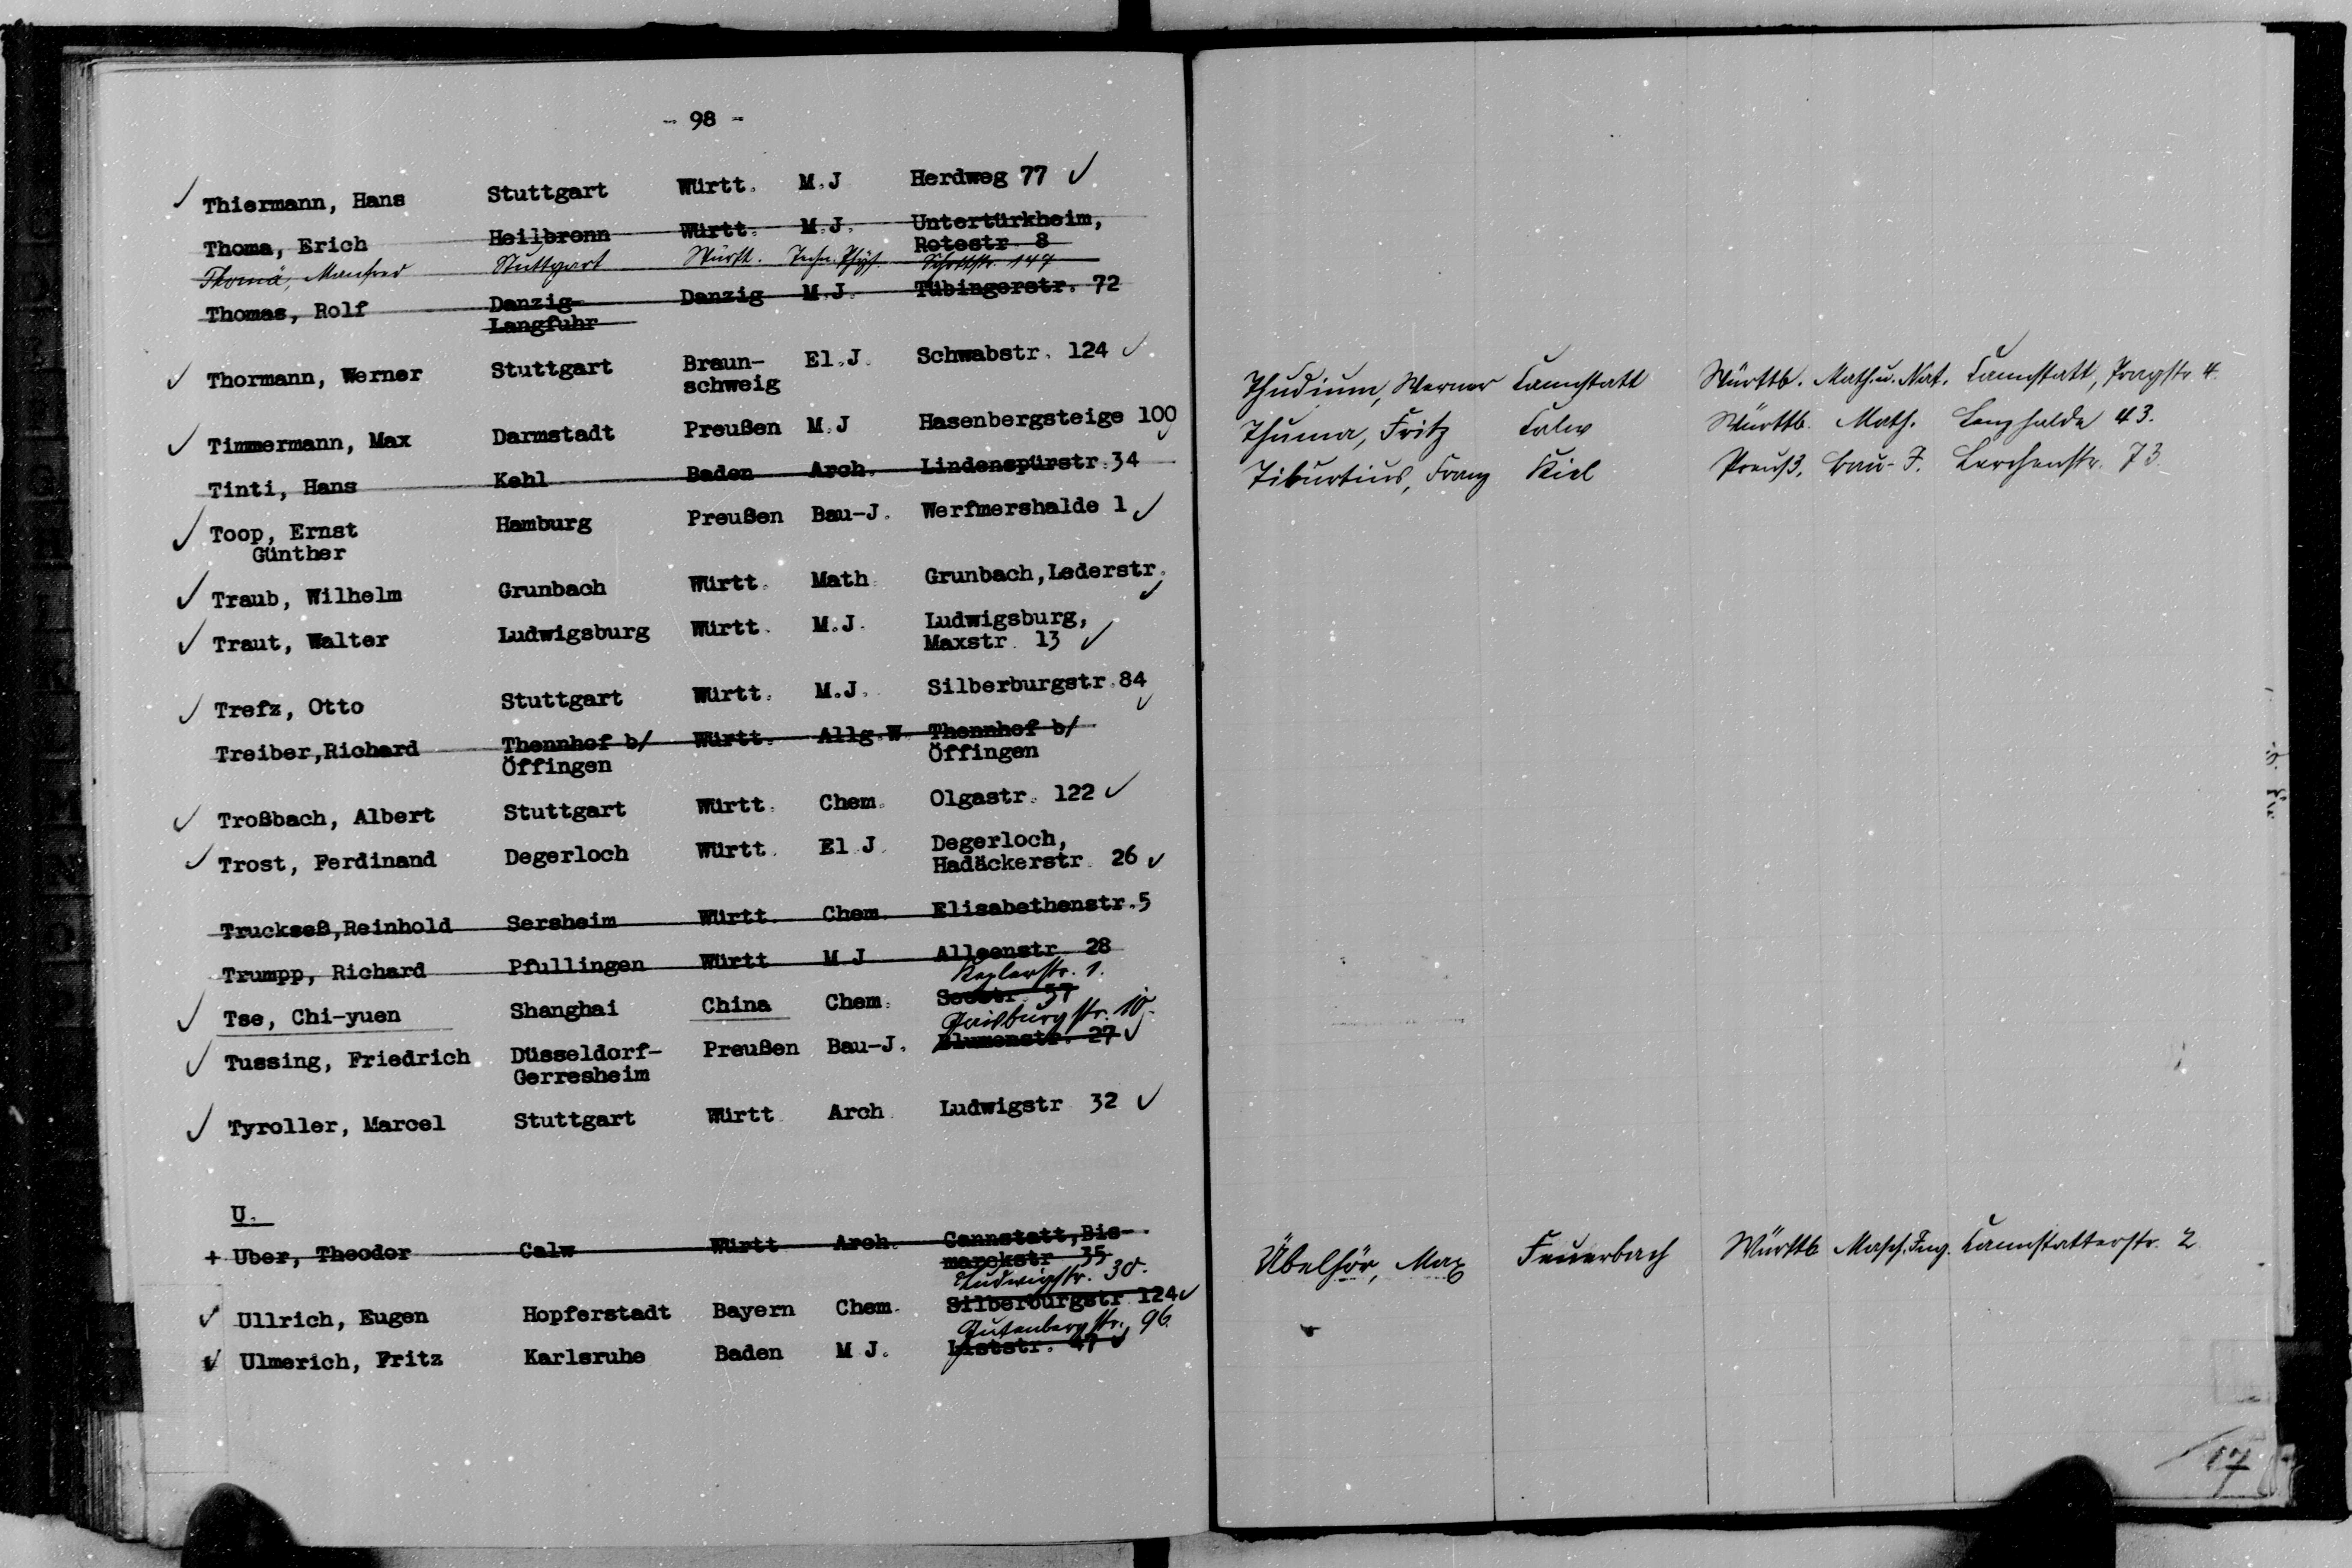 - 98 -
Thiermann, Hans Stuttgart Württ. M.J Herdweg 77
Thoma, Erich Heilbronn Württ. M.J. Untertürkheim,
Rotestr. 8
Thomä, Manfred Stuttgart Württ. Techn. Phys. Schottstr. 147
Thomas, Rolf Danzig- Danzig M.J. Tübingerstr. 72
Langfuhr
Thormann, Werner Stuttgart Braun- El.J. Schwabstr. 124
schweig
Timmermann, Max Darmstadt Preußen M.J Hasenbergsteige 100
Tinti, Hans Kehl Baden Arch. Lindenspürstr.34
Toop, Ernst Hamburg Preußen Bau-J. Werfmershalde 1
Günther
Traub, Wilhelm Grunbach Württ. Math. Grunbach,Lederstr.
Traut, Walter Ludwigsburg Württ. M.J. Ludwigsburg,
Maxstr. 13
Trefz, Otto Stuttgart Württ. M.J. Silberburgstr.84
Treiber,Richard Thennhof b/ Württ. Allg.W. Thennhof b/
Öffingen Öffingen
Troßbach, Albert Stuttgart Württ. Chem. Olgastr. 122
Trost, Ferdinand Degerloch Württ. El.J. Degerloch,
Hadäckerstr. 26
Truckseß,Reinhold Sersheim Württ. Chem. Elisabethenstr.5
Trumpp, Richard Pfullingen Württ M J Alleenstr 28
Keplerstr. 1.
Tse, Chi-yuen Shanghai China Chem. Seestr. 57
Gaisburgstr. 10.
Tussing, Friedrich Düsseldorf- Preußen Bau-J. Blumenstr. 27
Gerresheim
Tyroller, Marcel Stuttgart Württ Arch Ludwigstr 32
U.
+ Uber, Theodor Calw Württ Arch. Cannstatt,Bis-
marckstr 35
Ludwigstr. 30.
Ullrich, Eugen Hopferstadt Bayern Chem. Silberburgstr 124
Gutenbergstr. 96
Ulmerich, Fritz Karlsruhe Baden M J. Liststr. 47
Thudium, Werner Cannstatt Württb. Math.u.Nat. Cannstatt, Pragstr. 4.
Thuma, Fritz Calw Württb. Math. Lenzhalde 43.
Tiburtius, Franz Kiel Preuß. Bau-J. Lerchenstr. 73
Übelhör, Max Feuerbach Württb Masch.Ing. Cannstatterstr. 2
17